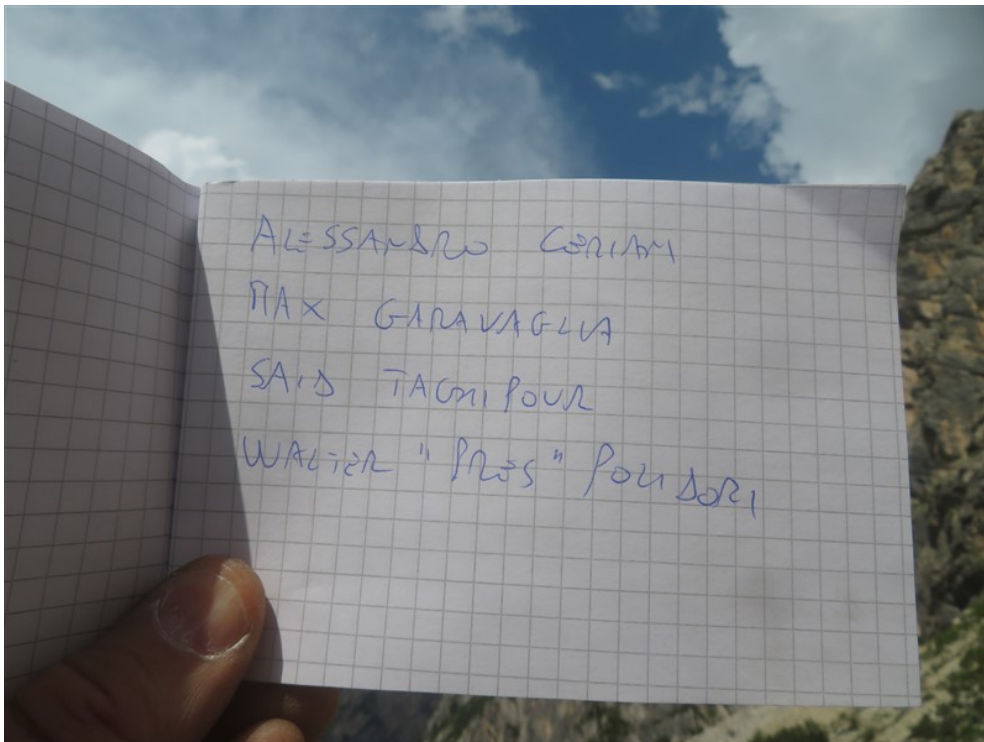 ALESSANDRO CERIANI
MAX GARAVAGLIA
SAID TAGHIPOUR
WALTER "PRES" POLIDORI